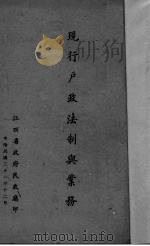 现行户政法制與業務
江西省政府民政廳印
中華民國三十一年十二月